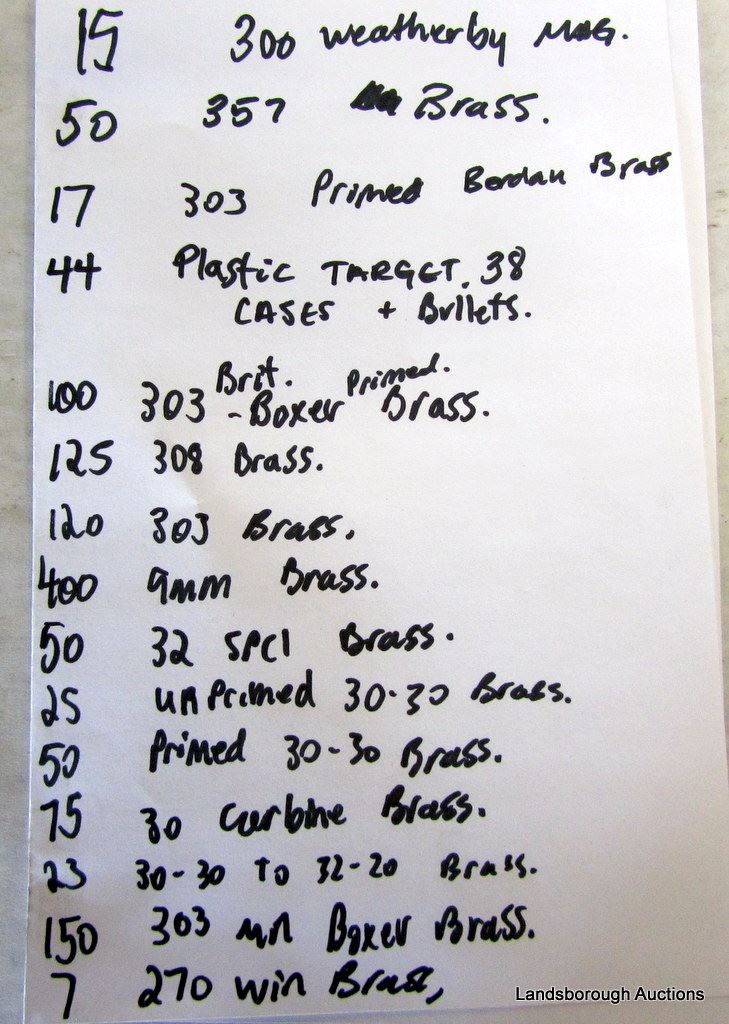 15 300 weatherby MAG.
50 357 Brass.
17 303 Primed Berdan Brass
44 Plastic TARGET. 38
CASES + Bullets.
Brit. Primed.
100 303 - Boxer Brass.
125 308 Brass.
120 303 Brass.
400 9mm Brass.
50 32 SPCl Brass.
25 unPrimed 30-30 Brass.
50 Primed 30-30 Brass.
75 30 carbine Brass.
23 30-30 To 32-20 Brass.
150 303 Boxer Brass.
7 270 win Brass,
Landsborough Auctions